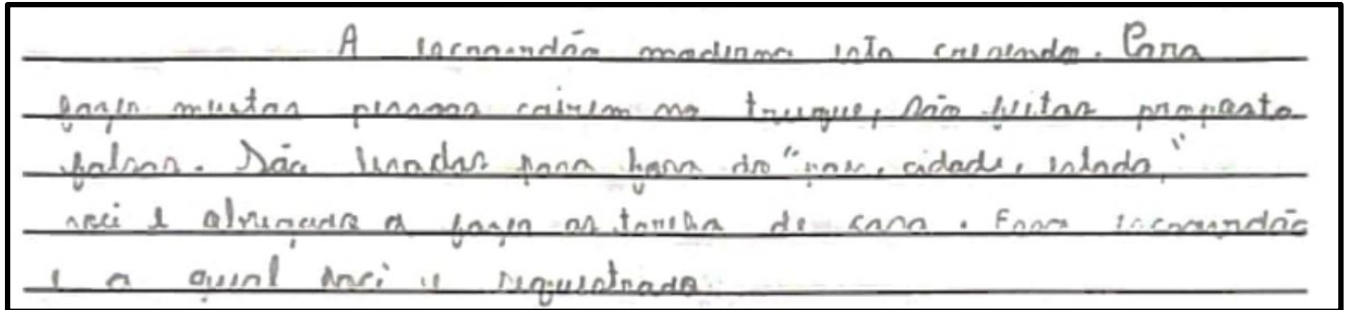 A escravidão moderna esta crescendo. Para
fazer muitas pessoas cairem no truque, são feitas proposta
falsas. São levadas para fora do "pais, cidade, estado,"
voci e obrigada a fazer as tarefa de casa. Essa escravidão
e a qual voci e sequestrada